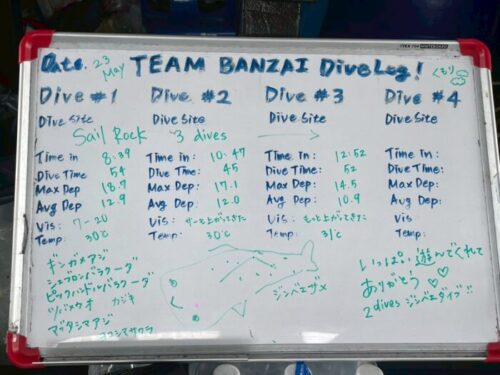 Date. 23 May TEAM BANZAI DiveLog! くもり
Dive #1 Dive #2 Dive #3 Dive #4
Dive Site Dive Site Dive Site Dive Site
Sail Rock 3 dives
Time in 8:39 Time in: 10:47 Time in: 12:52 Time in:
Dive Time 54 Dive Time: 45 Dive Time: 52 Dive Time:
Max Dep 18.7 Max Dep: 17.1 Max Dep: 14.5 Max Dep:
Avg Dep 12.9 Avg Dep: 12.0 Avg Dep: 10.9 Avg Dep:
Vis: 7-20 Vis: Vis: もっと上がってきた Vis
Temp: 30℃ Temp: 30℃ Temp: 31℃ Temp:
ギンガメアジ
シェブロンバラクーダ
ピックハンドルバラクーダ
ツバメウオ カジキ
マブタシマアジ
ジンベエザメ
いっぱい遊んでくれて
ありがとう ♡♡
2dives ジンベエダイブ!!